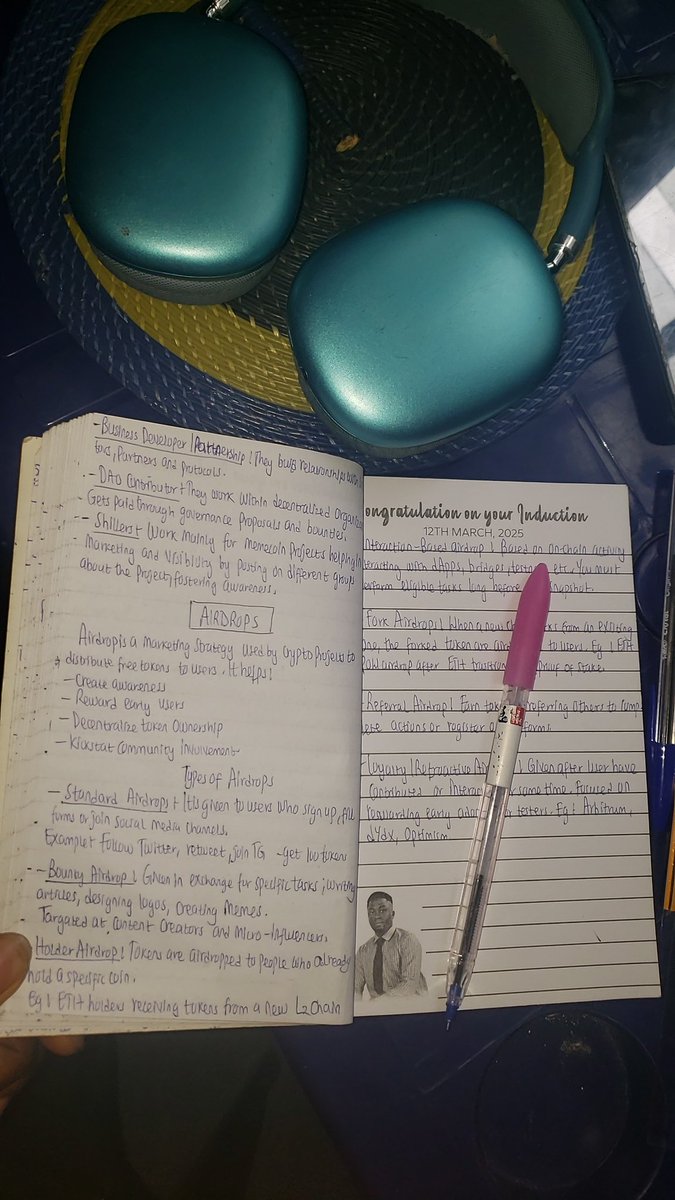 - Business Developer | Partnership ! They build relationships with
tors, Partners and protocols.
- DAO Contributor + They work within decentralized Organiza
- Gets paid through governance Proposals and bounties.
- Shillers + Work mainly for memecoin Projects helping in
Marketing and visibility by posting on different groups
about the Project, fostering awareness.
AIRDROPS
Airdrop is a marketing strategy used by Crypto Projects to
distribute free tokens to users. It helps!
- Create awareness
- Reward early users
- Decentralize token Ownership
- Kickstat Community Involvement
Types of Airdrops
- Standard Airdrops + It is given to users who sign up, fill
forms or join social media channels.
Example + Follow Twitter, retweet, join TG - get 100 tokens
- Bounty Airdrop ! Given in exchange for specific tasks ; writing
articles, designing logos, creating memes.
Targated at, Content Creators and Micro-Influencers.
Holder Airdrop ! Tokens are airdropped to people who already
hold a specific coin.
Eg ! ETH holders receiving tokens from a new L2 Chain
ongratulation on your Induction
12TH MARCH, 2025
nteraction-Based Airdrop ! Based on on-chain activity
teracting with dApps, bridges, etc. You must
erform eligible tasks long before snapshot.
Fork Airdrops ! When a new from an existing
one, the forked token are to users. Eg ! ETH
POW airdrop after ETH of stake.
Referral Airdrop ! Earn referring others to comp
lete actions or register forms.
Loyalty | Retroactive Given after user have
Contributed or some time. Focused on
rewarding early testers. Eg ! Arbitrum,
dYdx, Optimism